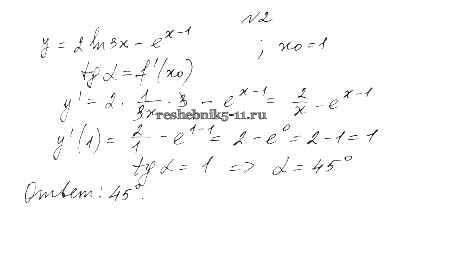 №2
y = 2 ln 3x - e^{x-1} ; x0 = 1
tg α = f'(x0)
y' = 2 · \frac{1}{3x} · 3 - e^{x-1} = \frac{2}{x} - e^{x-1}
reshebnik5-11.ru
y'(1) = \frac{2}{1} - e^{1-1} = 2 - e^0 = 2 - 1 = 1
tg α = 1 => α = 45°
Ответ: 45°.